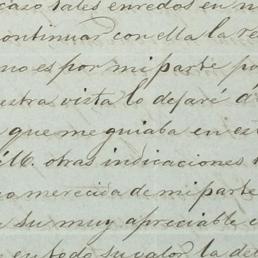 caso tales enredos en n
continuar con ella la re
no es por mi parte po
estra vista lo dejaré d
que me guiaba en es
otras indicaciones
merecida de mi parte
su muy apreciable c
en todo su valor la de